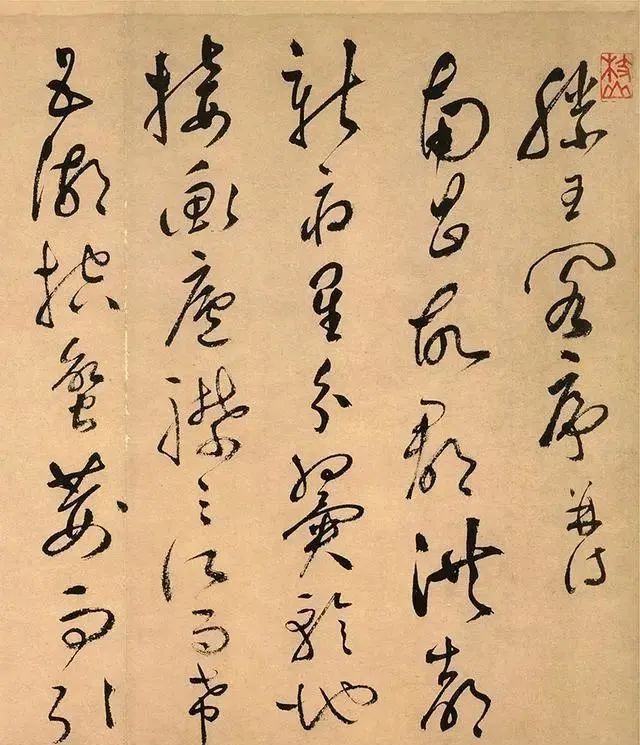 枝山
滕王閣序并詩
南昌故郡洪都
新府星分翼軫地
接衡廬襟三江而帶
五湖控蠻荊而引